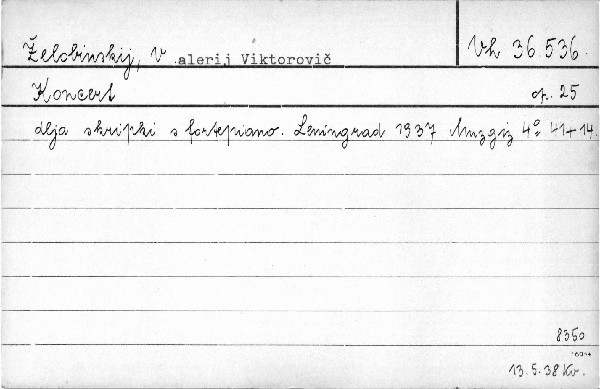 Želobinskij, Valerij Viktorovič Vh 36.536.
Koncert op. 25
dlja skripki s fortepiano. Leningrad 1937 Muzgiz 4° 41+14.
8350
13.5.38 Kv.